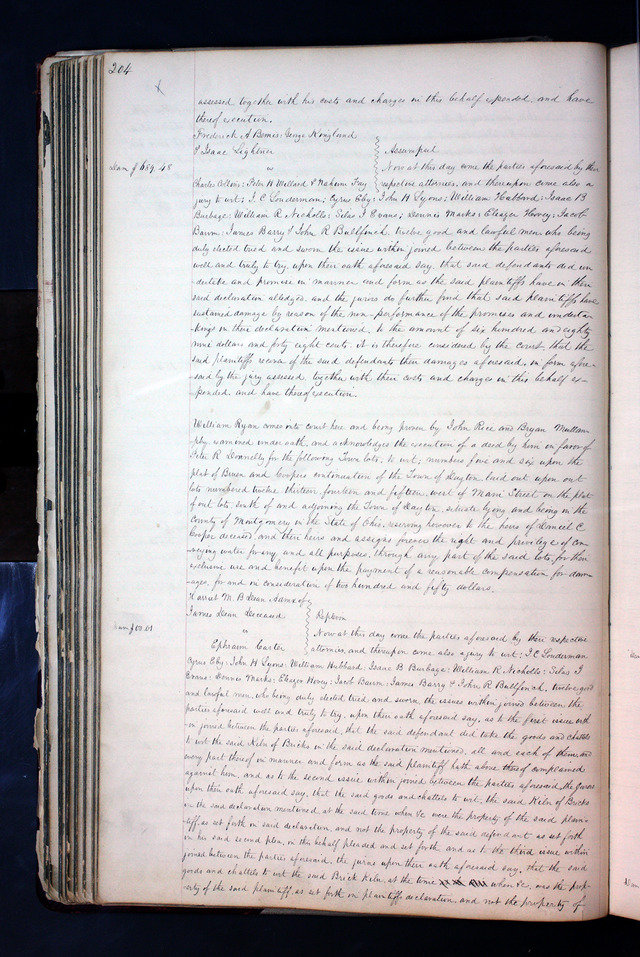 204
assessed together with his costs and charges in this behalf expended and have
thereof execution.
Frederick A Bemis: George Kingland
& Isaac Lightner
vs
Assumpsit
Dam $689.48
Now at this day come the parties aforesaid by their
Charles Collins: Peter H Willard & Nahum Fay
respective attornies, and thereupon came also a
jury to wit; I. C. Louderman; Cyrus Eby: John H Lyons; William Hubbard; Isaac B
Burbage: William R Nicholls: Silas I Evans; Dennis Marks: Eleazer Hovey: Jacob
Bawn; James Barry & John R Bullfinch twelve good and lawful men, who being
duly elected tried and sworn the issue within joined between the parties aforesaid
well and truly to try, upon their oath aforesaid say, that said defendants did un-
dertake and promise in manner and form as the said plaintiffs have in their
said declaration alledged, and the jurors do further find that said plaintiffs have
sustained damage by reason of the non-performance of the promises and underta-
kings in their declaration mentioned, to the amount of six hundred and eighty
nine dollars and forty eight cents. it is therefore considered by the court, that the
said plaintiffs recover of the said defendants their damages aforesaid, in form afore-
said by the jury assessed together with their costs and charges in this behalf ex-
pended, and have thereof execution.
William Ryan comes into court here and being proven by John Rice and Bryan Mullan-
phy examined under oath, and acknowledges the execution of a deed by him in favor of
Peter R Donnelly for the following Town lots; to wit; numbers five and six upon the
plat of Bruen and Coopers continuation of the Town of Dayton, laid out upon out
lots numbered twelve thirteen fourteen and fifteen, west of Main Street on the plat
of out lots, south of and adjoining the Town of Dayton, situate lying and being in the
County of Montgomery in the State of Ohio, reserving however to the heirs of Daniel C
Cooper deceased, and their heirs and assigns forever the right and priviledge of con-
veying water for any, and all purposes, through any part of the said lots, for their
exclusive use and benefit upon the payment of a reasonable compensation for dam-
ages, for and in consideration of two hundred and fifty dollars.
Harriet M. B Dean, Admx of
James Dean Deceased
Replevin
vs
Dam $00.01
Now at this day come the parties aforesaid by their respective
Ephraim Carter
attornies, and thereupon came also a jury to wit; I. C Louderman
Cyrus Eby: John H Lyons: William Hubbard; Isaac B Burbage: William R Nicholls: Silas I
Evans: Dennis Marks: Eleazer Hovey: Jacob Bawn; James Barry & John R Bullfinch, twelve good
and lawful men, who being duly elected, tried, and sworn, the issues within joined between the
parties aforesaid well and truly to try, upon their oath aforesaid say, as to the first issue with-
in joined between the parties aforesaid, that the said defendant did take the goods and chattles
to wit the said Kiln of Bricks in the said declaration mentioned, all and each of them and
every part thereof in manner and form as the said plaintiff hath above thereof complained
against him, and as to the second issue within joined between the parties aforesaid, the jurors
upon their oath aforesaid say, that the said goods and chattles to wit, the said Kiln of Bricks
in the said declaration mentioned, at the said time when &c were the property of the said plain-
tiff, as set forth in said declaration, and not the property of the said defendant as set forth
in his said second plea, in this behalf pleaded and set forth and as to the third issue within
joined between the parties aforesaid, the jurors upon their oath aforesaid say, that the said
goods and chattles to wit the said Brick Kiln, at the time when &c, was the prop-
erty of the said plaintiff, as set forth in plaintiffs declaration, and not the property of